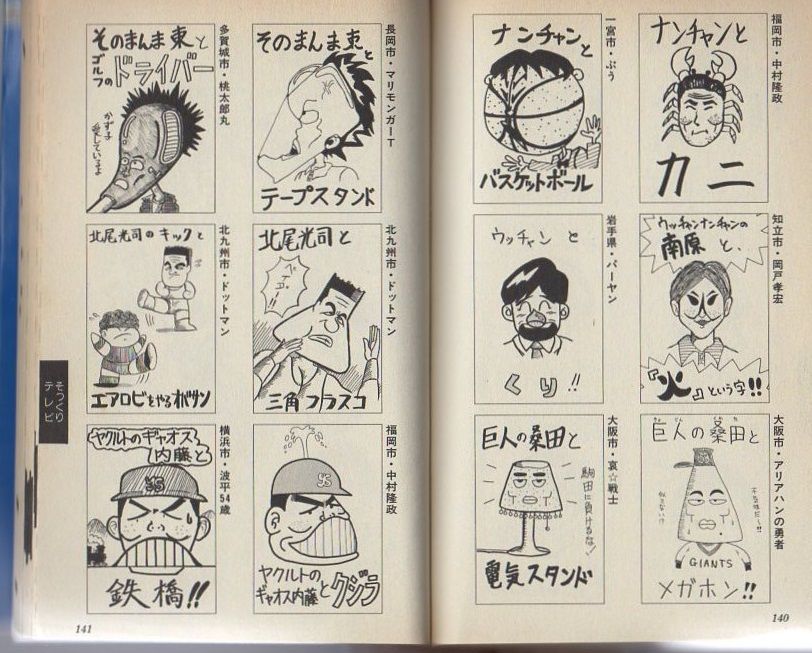 福岡市・中村隆政
ナンチャンと
カニ
一宮市・ぷう
ナンチャンと
バスケットボール
知立市・岡戸孝宏
ウッチャンナンチャンの
南原と、
『火』という字!!
岩手県・パーヤン
ウッチャンと
くり!!
大阪市・アリアハンの勇者
巨人の桑田と
GIANTS
メガホン!!
大阪市・哀☆戦士
巨人の桑田と
駒田に負けるな!
電気スタンド
140
長岡市・マリモンガーT
そのまんま東と
テープスタンド
多賀城市・桃太郎丸
そのまんま東と
ゴルフの
ドライバー
かず子
愛しているよ
北九州市・ドットマン
北尾光司と
三角フラスコ
北九州市・ドットマン
北尾光司のキックと
エアロビをやるオバサン
福岡市・中村隆政
YS
ヤクルトの
ギャオス内藤と
クジラ
横浜市・波平54歳
ヤクルトのギャオス
内藤と
YS
鉄橋!!
そっくり
テレビ
141